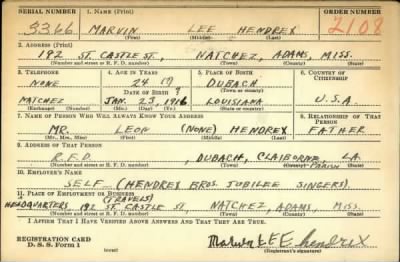 SERIAL NUMBER 1. NAME (Print) ORDER NUMBER
3366 MARVIN LEE HENDREX 2108
(First) (Middle) (Last)
2. ADDRESS (Print)
192 ST. CASTLE ST., NATCHEZ, ADAMS, MISS.
(Number and street or R. F. D. number) (Town) (County) (State)
3. TELEPHONE 4. AGE IN YEARS 5. PLACE OF BIRTH 6. COUNTRY OF CITIZENSHIP
NONE 24 DUBACH
DATE OF BIRTH (Town or county)
NATCHEZ JAN. 23, 1916 LOUISIANA U.S.A
(Exchange) (Number) (Mo.) (Day) (Yr.) (State or country)
7. NAME OF PERSON WHO WILL ALWAYS KNOW YOUR ADDRESS 8. RELATIONSHIP OF THAT PERSON
MR. LEON (NONE) HENDREX FATHER
(Mr., Mrs., Miss) (First) (Middle) (Last)
9. ADDRESS OF THAT PERSON
R.F.D. DUBACH, CLAIBORNE, LA.
(Number and street or R. F. D. number) (Town) (County) PARISH (State)
10. EMPLOYER'S NAME
SELF (HENDREX BROS. JUBILEE SINGERS)
11. PLACE OF EMPLOYMENT OR BUSINESS (TRAVELS)
HEADQUARTERS 192 ST. CASTLE ST NATCHEZ, ADAMS, MISS.
(Number and street or R. F. D. number) (Town) (County) (State)
I AFFIRM THAT I HAVE VERIFIED ABOVE ANSWERS AND THAT THEY ARE TRUE.
REGISTRATION CARD
D. S. S. Form 1 (over) (Registrant's signature)